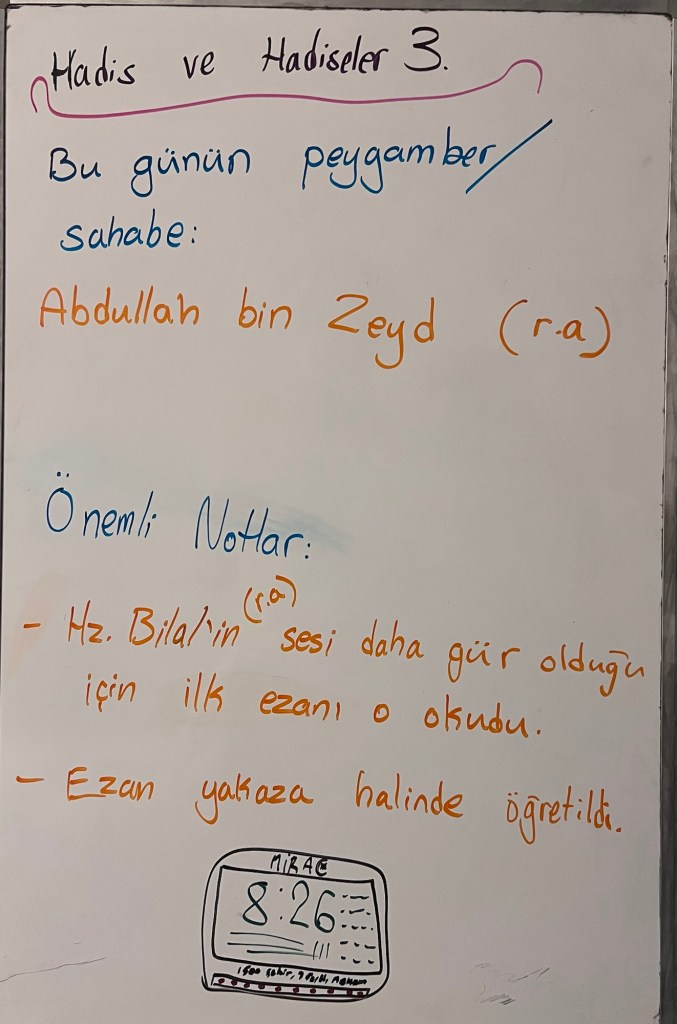 Hadis ve Hadiseler 3.
Bu günün peygamber/
sahabe:
Abdullah bin Zeyd (r.a)
Önemli Notlar:
- Hz. Bilal'in (r.a) sesi daha gür olduğu
için ilk ezanı o okudu.
- Ezan yakaza halinde öğretildi.
MİRAÇ
8:26
1500 şehir,